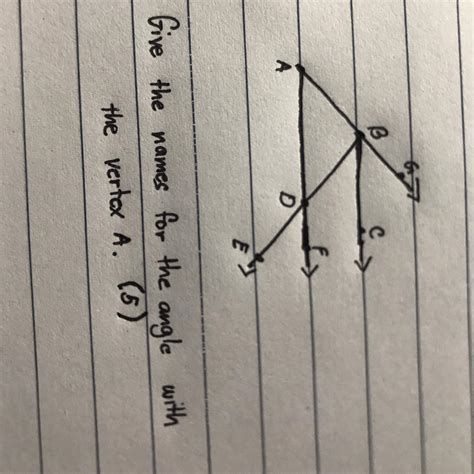 A
B
G
D
C
F
E
Give the names for the angle with
the vertex A. (5)